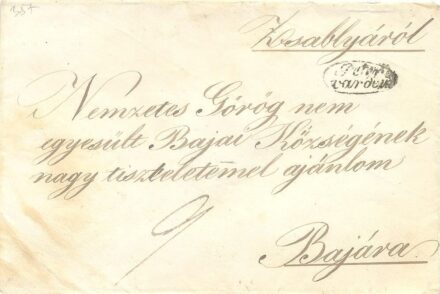 Zsablyáról
Peter
varden
Nemzetes Görög nem
egyesült Bajai Községének
nagy tisztelettel ajánlom
Bajára